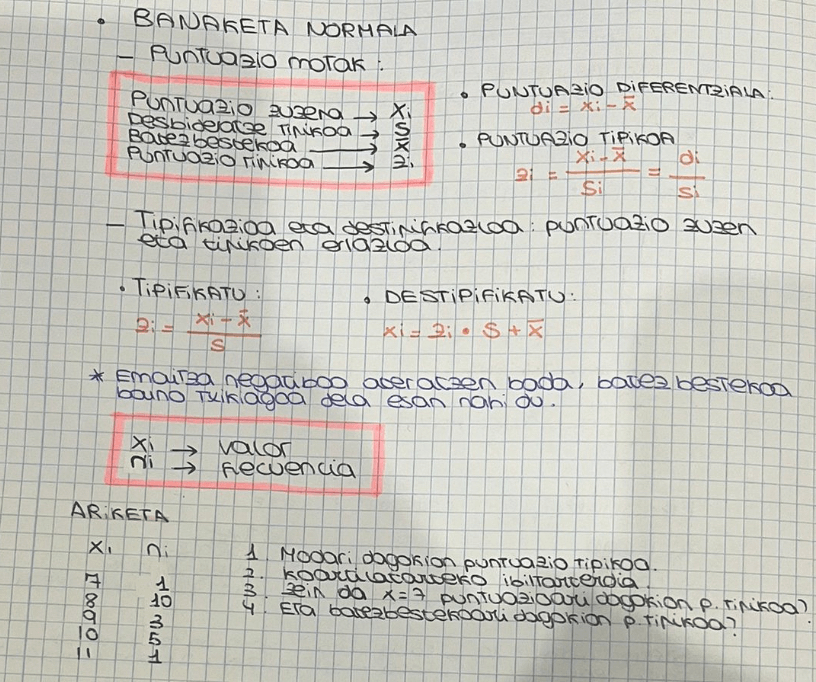 • BANAKETA NORMALA
– Puntuazio motak:
Puntuazio zuzena → Xi
Desbideratze Tipikoa → S
Batezbestekoa → X̄
Puntuazio Tipikoa → zi
• PUNTUAZIO DIFERENTZIALA:
di = xi - x̄
• PUNTUAZIO TIPIKOA
zi = xi - x̄ / si = di / si
– Tipifikazioa eta destipifikazioa: puntuazio zuzen
eta tipikoen erlazioa.
• TIPIFIKATU:
zi = xi - x̄ / s
• DESTIPIFIKATU:
xi = zi • S + x̄
* Emaitza negatiboa ateratzen bada, batezbestekoa
baino txikiagoa dela esan nahi du.
xi → valor
ni → frecuencia
ARIKETA
xi ni
7 1
8 10
9 3
10 5
11 1
1. Modari dagokion puntuazio tipikoa.
2. Koartilarteko ibiltartea
3. Zein da x=7 puntuazioari dagokion p. tipikoa?
4. Eta batezbestekoari dagokion p. tipikoa?